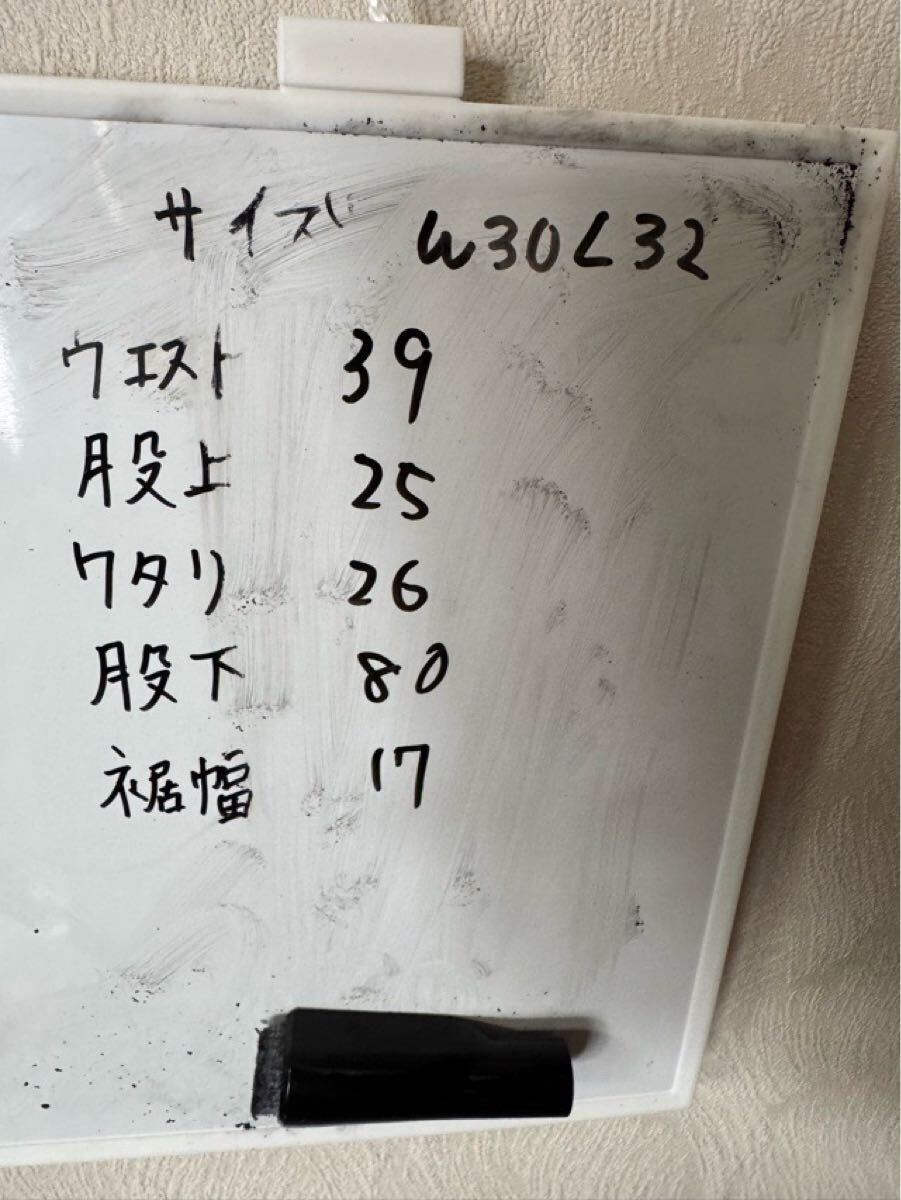 サイズ W30L32
ウエスト 39
股上 25
ワタリ 26
股下 80
裾幅 17